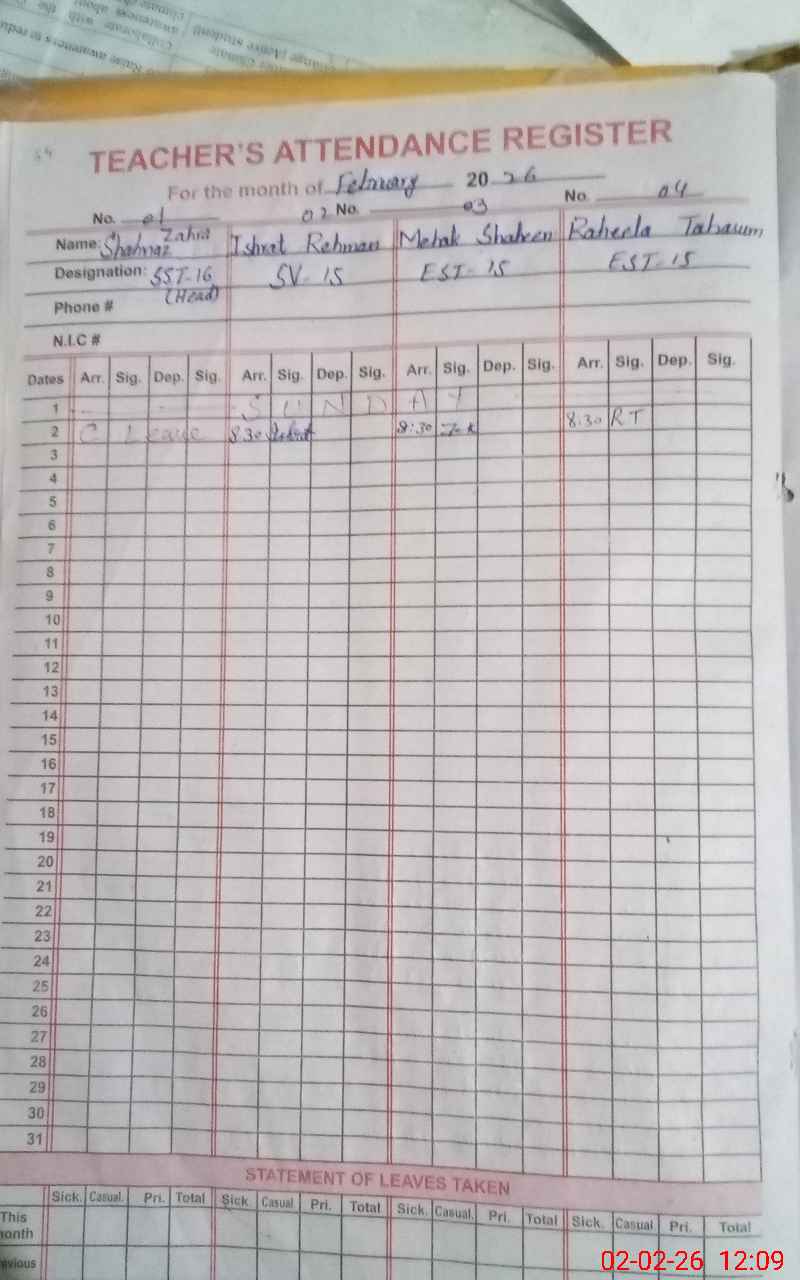 TEACHER'S ATTENDANCE REGISTER
For the month of February 2026
No. 01 02 No. 03 No. 04
Name: Shahnaz Zahra Ishrat Rehman Mehak Shaheen Raheela Tabasum
Designation: SST-16 (Head) SV-15 EST-15 EST-15
Phone #
N.I.C #
Dates Arr. Sig. Dep. Sig. Arr. Sig. Dep. Sig. Arr. Sig. Dep. Sig. Arr. Sig. Dep. Sig.
1 S U N D A Y
2 C Leave 8.30 8:30 8:30 RT
3
4
5
6
7
8
9
10
11
12
13
14
15
16
17
18
19
20
21
22
23
24
25
26
27
28
29
30
31
STATEMENT OF LEAVES TAKEN
Sick. Casual. Pri. Total Sick Casual. Pri. Total Sick. Casual. Pri. Total Sick. Casual Pri. Total
This
02-02-26 12:09